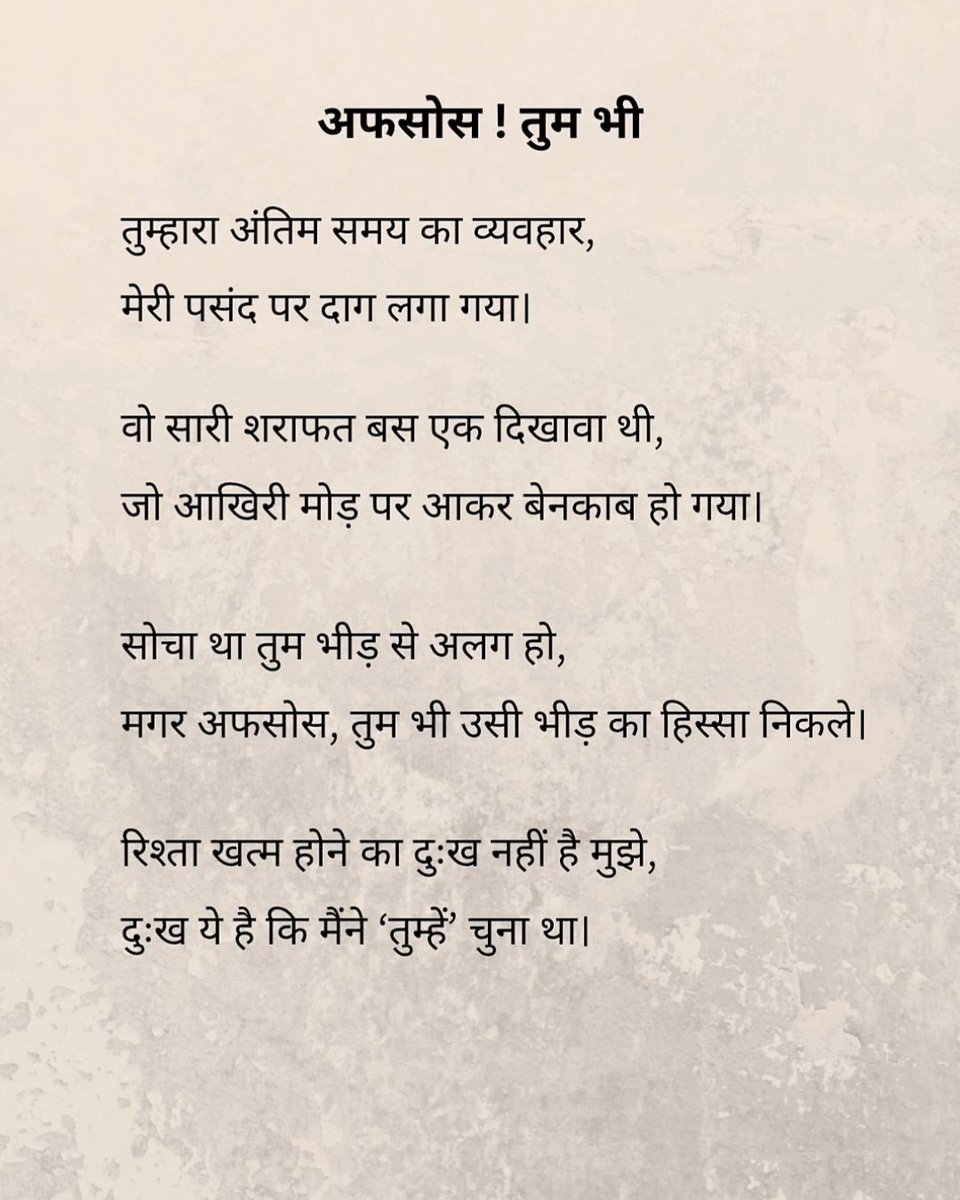 अफसोस ! तुम भी
तुम्हारा अंतिम समय का व्यवहार,
मेरी पसंद पर दाग लगा गया।
वो सारी शराफत बस एक दिखावा थी,
जो आखिरी मोड़ पर आकर बेनकाब हो गया।
सोचा था तुम भीड़ से अलग हो,
मगर अफसोस, तुम भी उसी भीड़ का हिस्सा निकले।
रिश्ता खत्म होने का दुःख नहीं है मुझे,
दुःख ये है कि मैंने ‘तुम्हें’ चुना था।